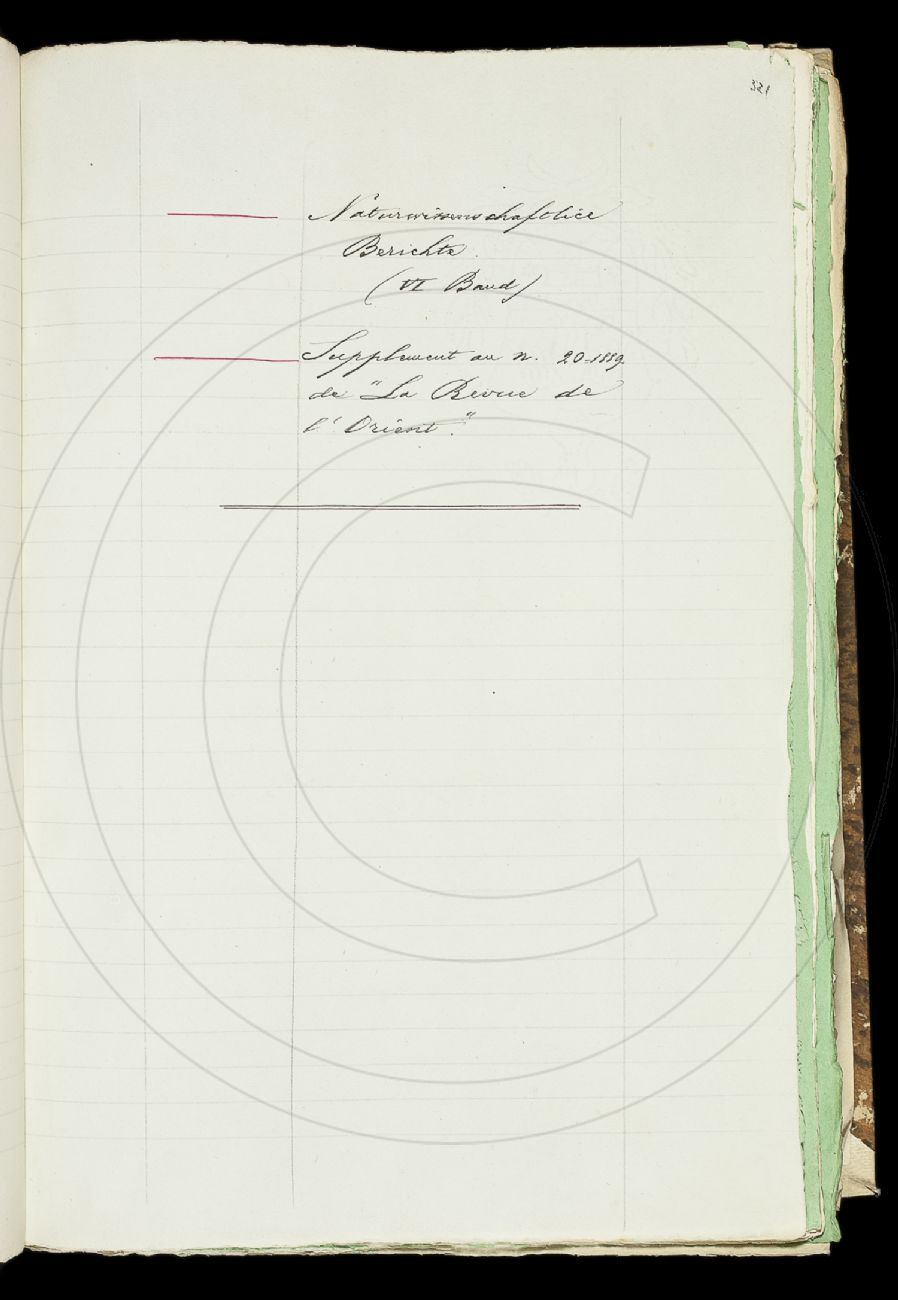 321
Naturwissenschaftlice
Berichte.
(VI Band)
Supplement au n. 20-1889
de "La Revue de
l'Orient."